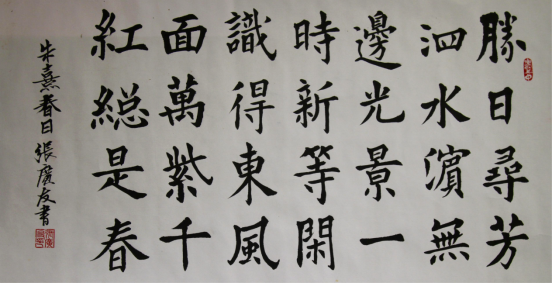 勝日尋芳
泗水濱無
邊光景一
時新等閑
識得東風
面萬紫千
紅緫是春
朱熹春日張廣友書